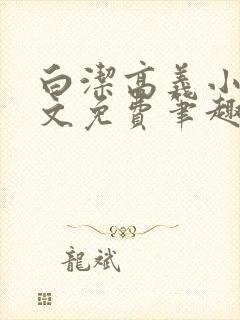 白潔高義小
文免費筆趣
龍斌